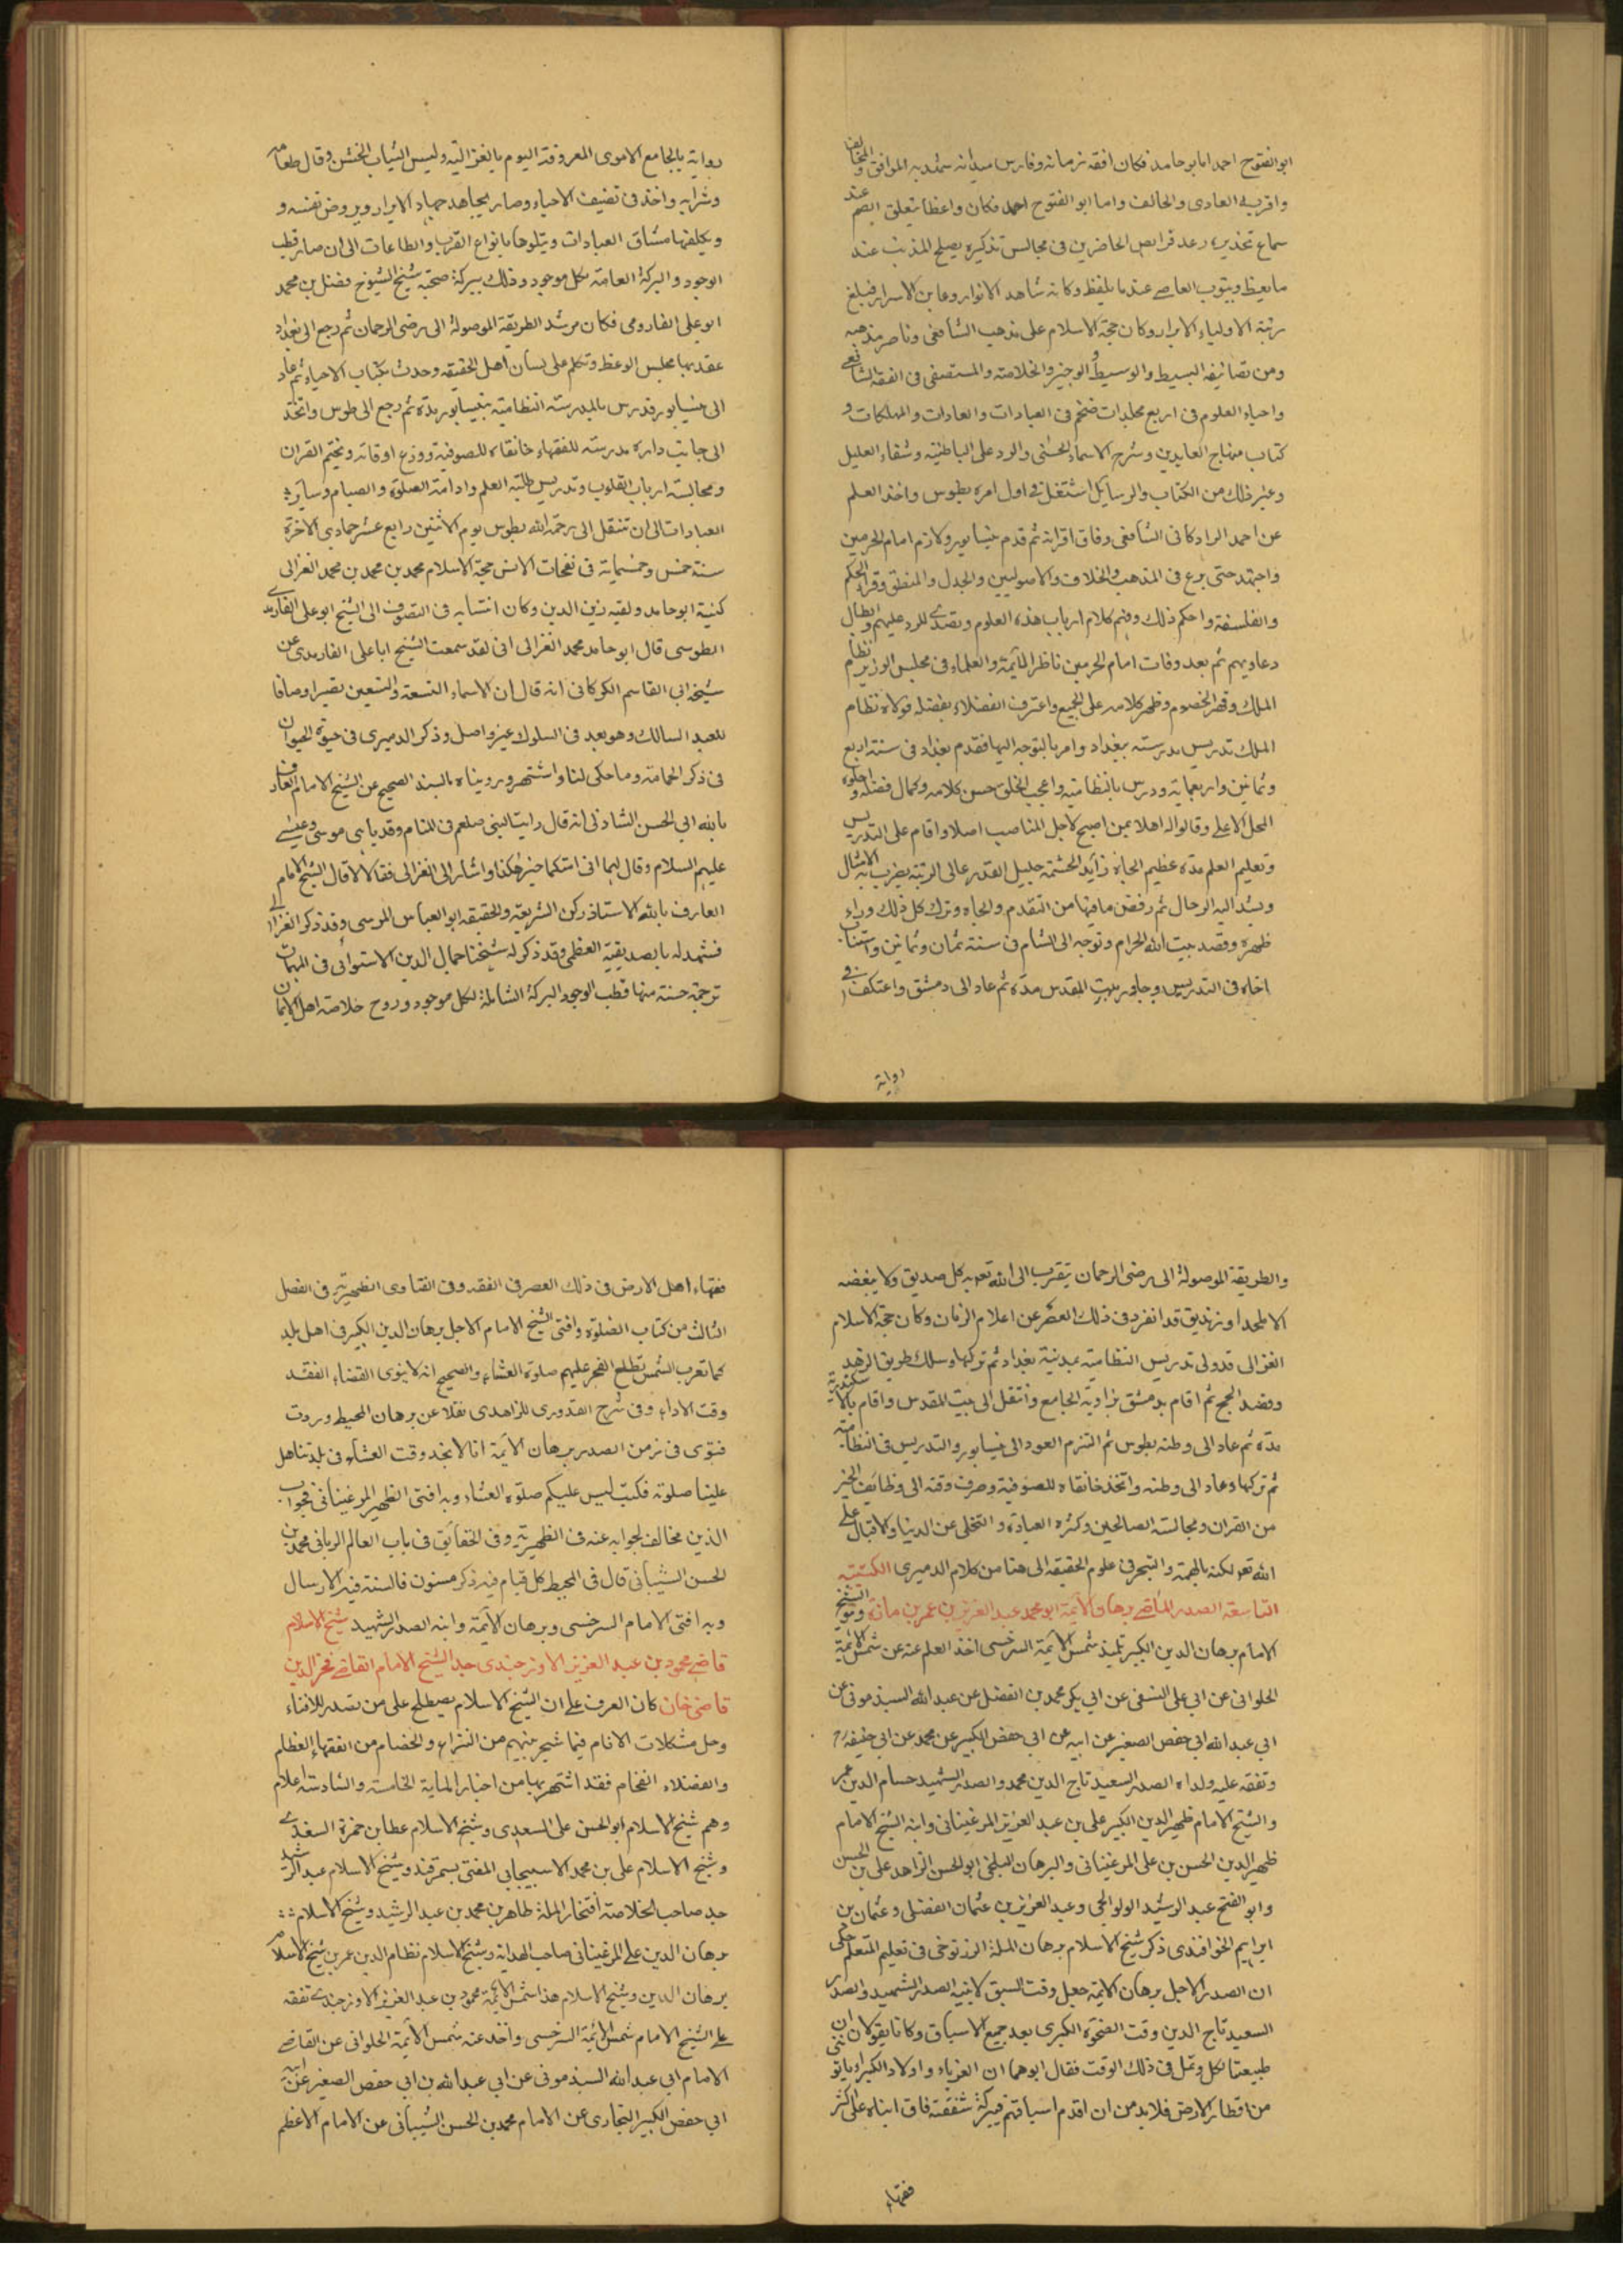 ابو الفتوح احمد اما ابو حامد فكان افقه زمانه وفارس ميدانه شهد به الموافق والمخالف
واقر به العادى والحالف واما ابو الفتوح احمد فكان واعظا تنعلق الصم عند
سماع تحذيره وترعد فرايص الحاضرين فى مجالس تذكيره يصلح المذنب عند
ما يعظ ويتوب العاصى عند ما يلفظ وكانه شاهد الانوار وعاين الاسرار فبلغ
رتبة الاولياء الابرار وكان حجة الاسلام على مذهب الشافعى وناصر مذهبه
ومن تصانيفه البسيط والوسيط والوجيز والخلاصة والمستصفى فى الفقه الشافعى
واحياء العلوم فى اربع مجلدات ضخم فى العبادات والعادات والمهلكات و
كتاب منهاج العابدين وشرح الاسماء الحسنى والرد على الباطنية وشفاء العليل
وغير ذلك من الكتاب والرسايل اشتغل فى اول امره بطوس واخذ العلم
عن احمد الرادكانى الشافعى وفاق اقرانه ثم قدم نيسابور ولازم امام الحرمين
واجتهد حتى برع فى المذهب والخلاف والاصوليين والجدل والمنطق وقراء الحكم
والفلسفة واحكم ذلك وفهم كلام ارباب هذه العلوم وتصدى للرد عليهم وابطال
دعاويهم ثم بعد وفات امام الحرمين ناظر الائمة والعلماء فى مجلس الوزير نظام
الملك وقهر الخصوم وظهر كلامه على الجميع واعترف الفضلاء بفضله فولاه نظام
الملك تدريس مدرسته ببغداد وامر بالتوجه اليها فقدم بغداد فى سنة اربع
وثمانين واربعماية ودرس بالنظامية واعجب الخلق حسن كلامه وكمال فضله واحلوه
المحل الاعلى وقالوا له اهلا بمن اصبح لاجل المناصب اصلا واقام على التدريس
وتعليم العلم مدة عظيم الجاه زايد الحشمة جليل القدر عالى الرتبة يضرب به الامثال
ويشد اليه الرحال ثم رفض ما فيها من التقدم والجاه وترك كل ذلك وراء
ظهره وقصد بيت الله الحرام وتوجه الى الشام فى سنة ثمان وثمانين واستناب
اخاه فى التدريس وجاور بيت المقدس مدة ثم عاد الى دمشق واعتكف فى
رواية
رواية بالجامع الاموى المعروفة اليوم بالغزالية ولبس الثياب الخشن وقال طعامه
وشرابه واخذ فى تصنيف الاحياء وصار يجاهد جهاد الابرار ويروض نفسه و
ويكلفها مشاق العبادات ويتلوها بانواع القرب والطاعات الى ان صار قطب
الوجود والبركة العامة لكل موجود وذلك ببركة صحبة شيخ الشيوخ فضل بن محمد
ابو على الفارومى فكان مرشد الطريقة الموصولة الى رضى الرحمان ثم رجع الى بغداد
عقد بها مجلس الوعظ وتكلم على لسان اهل الحقيقه وحدث بكتاب الاحياء ثم عاد
الى نيسابور فدرس بالمدرسة النظامية بنيسابور مدة ثم رجع الى طوس واتخذ
الى جانب داره مدرسة للفقهاء خانقاه للصوفية ووزع اوقاته وتختم القران
ومجالسة ارباب القلوب وتدريس طلبة العلم وادامة الصلوة والصيام وساير
العبادات الى ان تنقل الى رحمة الله بطوس يوم الاثنين رابع عشر جمادى الاخرة
سنة خمس وخمسماية فى نفحات الانس حجة الاسلام محمد بن محمد بن محمد الغزالى
كنية ابو حامد ولقبه زين الدين وكان انتسابه فى التصوف الى الشيخ ابو على الفارمدى
الطوسى قال ابو حامد محمد الغزالى انى لقد سمعت الشيخ ابا على الفارمدى عن
شيخه ابى القاسم الكركانى انه قال ان الاسماء التسعة والتسعين يصير اوصافا
للعبد السالك وهو بعد فى السلوك غير واصل وذكر الدميرى فى حيوة الحيوان
فى ذكر الحمامة وما حكى لنا واشتهر وروينا بالسند الصحيح عن الشيخ الامام العارف
بالله ابى الحسن الشاذلى انه قال رايت النبى صلعم فى المنام وقد باهى موسى وعيسى
عليهم السلام وقال لهما افى امتكما حبر هكذا واشار الى الغزالى فقالا لا قال الشيخ الامام
العارف بالله الاستاذ ركن الشريعة والحقيقة ابو العباس المرسى وقد ذكر الغزالى
فشهد له بالصديقية العظمى وقد ذكر له شيخنا جمال الدين الاسنوانى فى المهمات
ترجمة حسنة منها قطب الوجود البركة الشاملة لكل موجود وروح خلاصة اهل الايمان
والطريقة الموصولة الى رضى الرحمان يتقرب الى الله تعه به كل صديق ولا يبغضه
الا ملحد او زنديق قد انفرد فى ذلك العصر عن اعلام الزمان وكان حجة الاسلام
الغزالى قد ولى تدريس النظامية بمدينة بغداد ثم تركها وسلك طريق الزهد
وقصد الحج ثم اقام بدمشق بزاوية الجامع وانتقل الى بيت المقدس واقام بالاسكندرية
مدة ثم عاد الى وطنه بطوس ثم التزم العود الى نيسابور والتدريس فى النظامية
ثم تركها وعاد الى وطنه واتخذ خانقاه للصوفية وصرف وقته الى وظائف الخير
من القران ومجالسة الصالحين وكثرة العبادة والتخلى عن الدنيا والاقبال على
الله تعه بكنه الهمة والتبحر فى علوم الحقيقة الى هنا من كلام الدميرى الكتيبة
التاسعة الصدر الماضى برهان الائمة ابو محمد عبد العزيز بن عمر بن مازة وهو الشيخ
الامام برهان الدين الكبير تلميذ شمس الائمة السرخسى اخذ العلم عنه عن شمس الائمة
الحلوانى عن ابى على النسفى عن ابى بكر محمد بن الفضل عن عبد الله السبذمونى عن
ابى عبد الله ابى حفص الصغير عن ابيه عن ابى حفص الكبير عن محمد عن ابى حنيفة رح
وتفقه عليه ولداه الصدر السعيد تاج الدين محمد والصدر الشهيد حسام الدين عمر
والشيخ الامام ظهير الدين الكبير على بن عبد العزيز المرغينانى وابنه الشيخ الامام
ظهير الدين الحسن بن على المرغينانى والبرهان البلخى ابو الحسن الزاهد على بن الحسن
وابو الفتح عبد الرشيد الولوالجى وعبد العزيز بن عثمان الفضلى وعثمان بن
ابراهيم الخواقندى ذكر شيخ الاسلام برهان الملة الزرنوخى فى تعليم المتعلم حكى
ان الصدر الاجل برهان الائمة جعل وقت السبق لابنيه الصدر الشهيد والصدر
السعيد تاج الدين وقت الضحوة الكبرى بعد جميع الاسباق وكانا يقولان ان
طبيعتنا تكل وتمل فى ذلك الوقت فقال ابوهما ان الغرباء واولاد الكبراء ياتوننى
من اقطار الارض فلا بد من ان اقدم اسباقهم فببركة شفقته فاق ابناه على اكثر
فقهاء
فقهاء اهل الارض فى ذلك العصر فى الفقه وفى الفتاوى الظهيرية فى الفصل
الثالث من كتاب الصلوة وافتى الشيخ الامام الاجل برهان الدين الكبير فى اهل بلد
كما تغرب الشمس يطلع الفجر عليهم صلوة العشاء والصحيح انه لا ينوى القضاء لفقد
وقت الاداء وفى شرح القدورى للزاهدى نقلا عن برهان المحيط وردت
فتوى فى زمن الصدر برهان الائمة انا لا نجد وقت العشاء فى بلدتنا هل
علينا صلوته فكتب ليس عليكم صلوة العشاء وبه افتى الظهير المرغينانى فجواب
الذين مخالف لجوابه عنه فى الظهيرية وفى الحقائق فى باب العالم الربانى محمد بن
الحسن الشيبانى قال فى المحيط كل قيام فيه ذكر مسنون فالسنة فيه الارسال
وبه افتى الامام السرخسى وبرهان الائمة وابنه الصدر الشهيد شيخ الاسلام
قاضى محمود بن عبد العزيز الاوزجندى جد الشيخ الامام القاضى فخر الدين
قاضى خان كان العرف على ان الشيخ الاسلام يصطلح على من تصدر للافتاء
وحل مشكلات الانام فيما شجر بينهم من النزاع والخصام من الفقهاء العظام
والفضلاء الفخام فقد اشتهر بها من اخبار الماية الخامسة والسادسة اعلام
وهم شيخ الاسلام ابو الحسن على السعدى وشيخ الاسلام عطا بن حمزة السغدى
وشيخ الاسلام على بن محمد الاسبيجابى المفتى بسمرقند وشيخ الاسلام عبد الرشيد
جد صاحب الخلاصة افتخار الملة طاهر بن محمد بن عبد الرشيد وشيخ الاسلام
برهان الدين على المرغينانى صاحب الهداية وشيخ الاسلام نظام الدين عمر بن شيخ الاسلام
برهان الدين وشيخ الاسلام هذا شمس الائمة محمود بن عبد العزيز الاوزجندى تفقه
على الشيخ الامام شمس الائمة السرخسى واخذ عنه شمس الائمة الحلوانى عن القاضى
الامام ابى عبد الله السبذمونى عن ابى عبد الله بن ابى حفص الصغير عن ابيه
ابى حفص الكبير البخارى عن الامام محمد بن الحسن الشيبانى عن الامام الاعظم